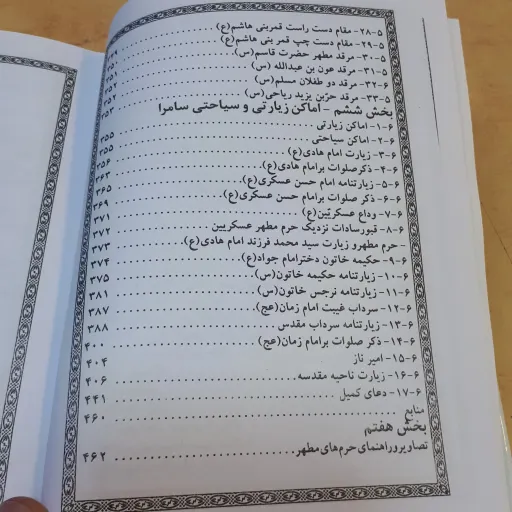 ۵-۲۸- مقام دست راست قمربنی هاشم(ع)
۵-۲۹- مقام دست چپ قمر بنی هاشم(ع) ۳۴۹
۵-۳۰- مرقد مطهر حضرت قاسم(س) ۳۵۱
۵-۳۱- مرقد عون بن عبدالله (س) ۳۵۱
۵-۳۲- مرقد دو طفلان مسلم(س) ۳۵۲
۵-۳۳- مرقد حربن یزید ریاحی(س) ۳۵۳
بخش ششم - اماکن زیارتی و سیاحتی سامرا
۶-۱- اماکن زیارتی ۳۵۵
۶-۲- اماکن سیاحتی ۳۵۵
۶-۳- زیارت امام هادی(ع) ۳۵۶
۶-۴- ذکرصلوات برامام هادی(ع) ۳۶۳
۶-۵- زیارتنامه امام حسن عسکری(ع) ۳۶۵
۶-۶- ذکر صلوات برامام حسن عسکری(ع) ۳۶۹
۶-۷- وداع عسکریّین(ع) ۳۷۱
۶-۸- قبورسادات نزدیک حرم مطهر عسکریین ۳۷۲
- حرم مطهرو زیارت سید محمد فرزند امام هادی(ع) ۳۷۳
۶-۹- حکیمه خاتون دخترامام جواد(ع) ۳۷۴
۶-۱۰- زیارتنامه حکیمه خاتون(س) ۳۷۵
۶-۱۱- زیارتنامه نرجس خاتون(س) ۳۸۱
۶-۱۲- سرداب غیبت امام زمان(عج) ۳۸۷
۶-۱۳- زیارتنامه سرداب مقدس ۳۸۸
۶-۱۴- ذکر صلوات برامام زمان(عج) ۴۰۰
۶-۱۵- امیر ناز ۴۰۴
۶-۱۶- زیارت ناحیه مقدسه ۴۰۶
۶-۱۷- دعای کمیل ۴۴۱
منابع ۴۶۰
بخش هفتم
تصاویرو راهنمای حرم‌های مطهر ۴۶۲